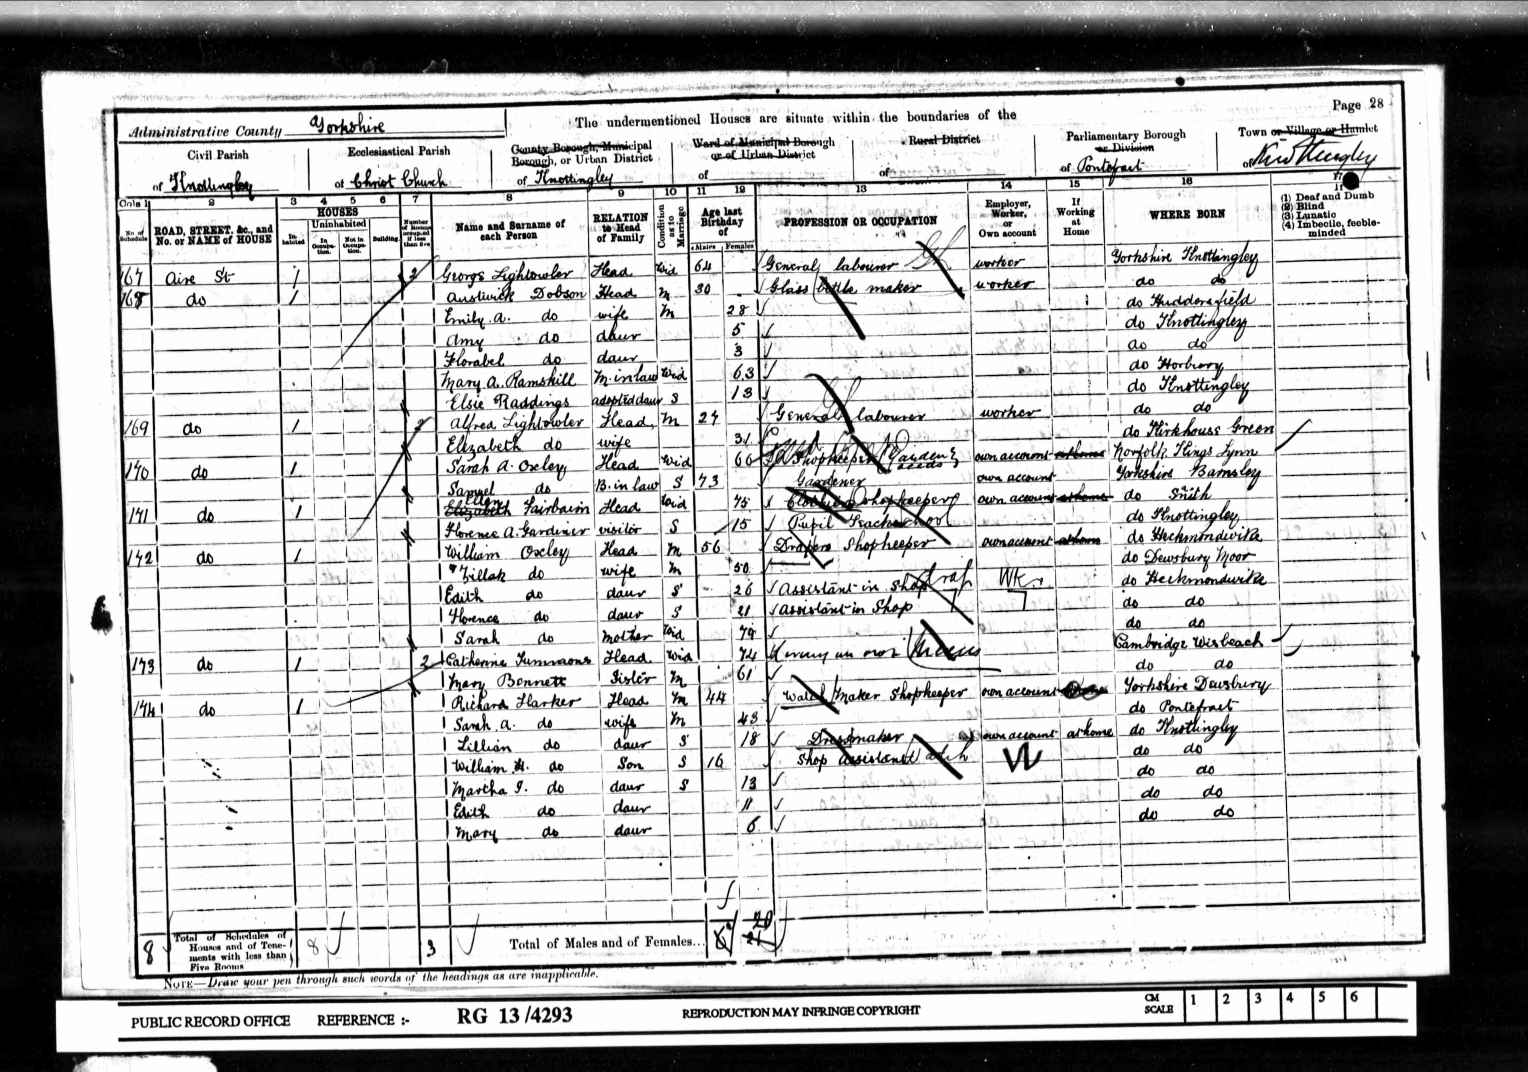 Page 28
The undermentioned Houses are situate within the boundaries of the
Administrative County Yorkshire
Civil Parish
of Knottingley
Ecclesiastical Parish
of Christ Church
County Borough, Municipal
Borough, or Urban District
of Knottingley
Ward of Municipal Borough
or of Urban District
of
Rural District
of
Parliamentary Borough
or Division
of Pontefract
Town or Village or Hamlet
of Knottingley
Cols 1 2 3 4 5 6 7 8 9 10 11 12 13 14 15 16 17
No. of Schedule
ROAD, STREET, &c., and No. or NAME of HOUSE
HOUSES
Inhabited
Uninhabited
In Occupation.
Not in Occupation.
Building.
Number of Rooms occupied if less than five
Name and Surname of each Person
RELATION to Head of Family
Condition as to Marriage
Age last Birthday of
Males Females
PROFESSION OR OCCUPATION
Employer, Worker, or Own account
If Working at Home
WHERE BORN
If
(1) Deaf and Dumb
(2) Blind
(3) Lunatic
(4) Imbecile, feeble-minded
167 Aire St 1 2 George Lightowler Head Wid 64 General labourer worker Yorkshire Knottingley
168 do 1 Austwick Dobson Head M 30 Glass bottle maker worker do do
Emily A. do wife M 28 do Huddersfield
Amy do daur 5 do Knottingley
Florabel do daur 3 do do
Mary A. Ramskill M. in law Wid 63 do Horbury
Elsie Raddings adopted daur S 13 do Knottingley
169 do 1 Alfred Lightowler Head M 27 General labourer worker do do
Elizabeth do wife 31 do Kirkhouse Green
170 do 1 Sarah A. Oxley Head Wid 66 Shopkeeper Garden seeds own account at home Norfolk Kings Lynn
Samuel do B. in law S 73 Gardener own account Yorkshire Barnsley
171 do 1 Elizabeth Ellen Fairbairn Head Wid 75 Shopkeeper own account at home do Snaith
Florence A. Gardiner visitor S 15 Pupil Teacher do Knottingley
172 do 1 William Oxley Head M 56 Drapers Shopkeeper own account at home do Heckmondwike
Zillah do wife M 50 do Dewsbury Moor
Edith do daur S 26 Assistant in Shop Wk. do Heckmondwike
Florence do daur S 21 Assistant in Shop do do
Sarah do Mother Wid 79 do do
173 do 1 2 Catherine Head Wid 74 Living on own Means Cambridge Wisbeach
Mary Bennett Sister M 61 do do
174 do 1 Richard Harker Head M 44 Watch Maker Shopkeeper own account Yorkshire Dewsbury
Sarah A. do wife M 43 do Pontefract
Lillian do daur S 18 Dressmaker own account at home do Knottingley
William H. do Son S 16 Shop assistant W do do
Martha I. do daur S 13 do do
Edith do daur 11 do do
Mary do daur 6 do do
8 Total of Schedules of Houses and of Tenements with less than Five Rooms 8 3 Total of Males and of Females... 20 21
NOTE—Draw your pen through such words of the headings as are inapplicable.
PUBLIC RECORD OFFICE REFERENCE :- RG 13 /4293 REPRODUCTION MAY INFRINGE COPYRIGHT CM SCALE 1 2 3 4 5 6